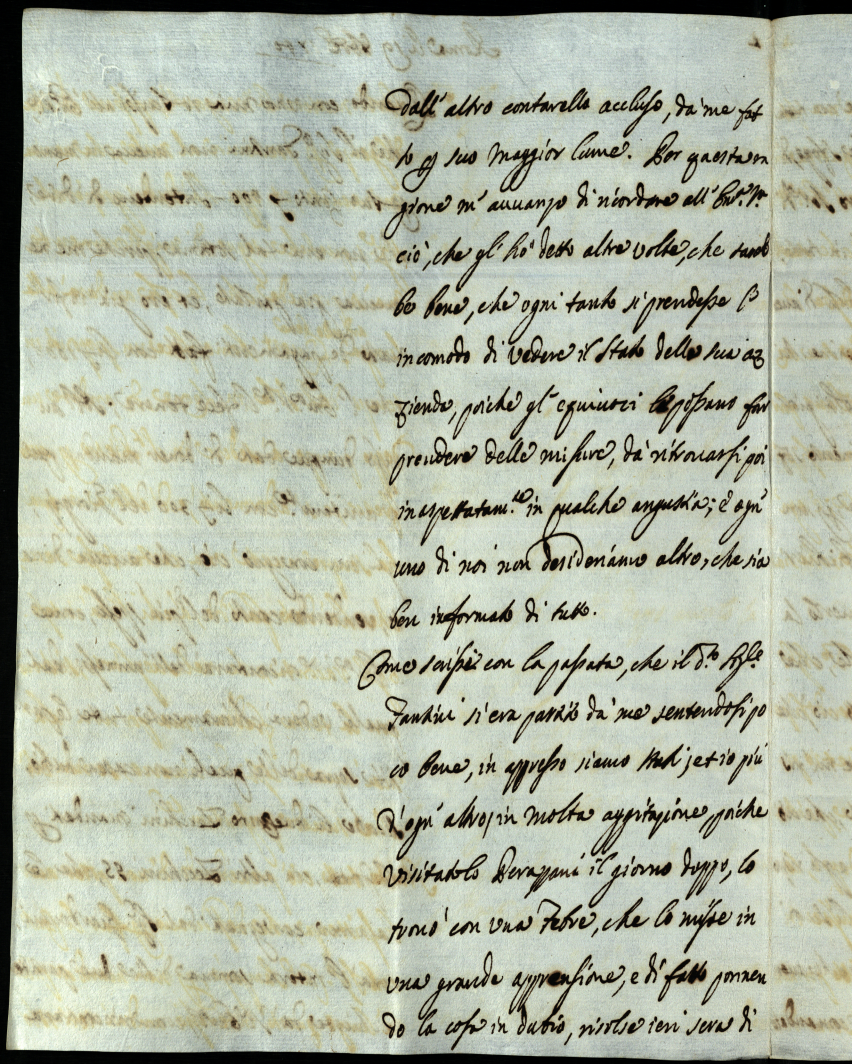 dall' altro contarello accluso, da' me fat
to p suo maggior lume. Per questa ra
gione m' auuanzo di ricordare all' Em.ª V.ª
ciò, che gl' hò detto altre volte, che sareb
be bene, che ogni tanto si prendesse l'
incomodo di vedere il stato della sua az
zienda, poiche gl' equiuoci le possano far
prendere delle misure, da' ritrouarsi poi
inaspettatam.te in qualche angustia; è ogn'
uno di noi non desideriamo altro, che sia
ben informato di tutto.
Come scrissi con la passata, che il d.to Sig.le
Fantini si era partito da' me sentendosi po
co bene, in appresso siamo stati, et io più
d' ogn' altro, in molta aggitazione, poiche
visitatolo Derappani il giorno doppo, lo
trouò con una Febre, che lo misse in
una grande apprensione, e di fatto ponnen
do la cosa in dubio, risolse ieri sera di